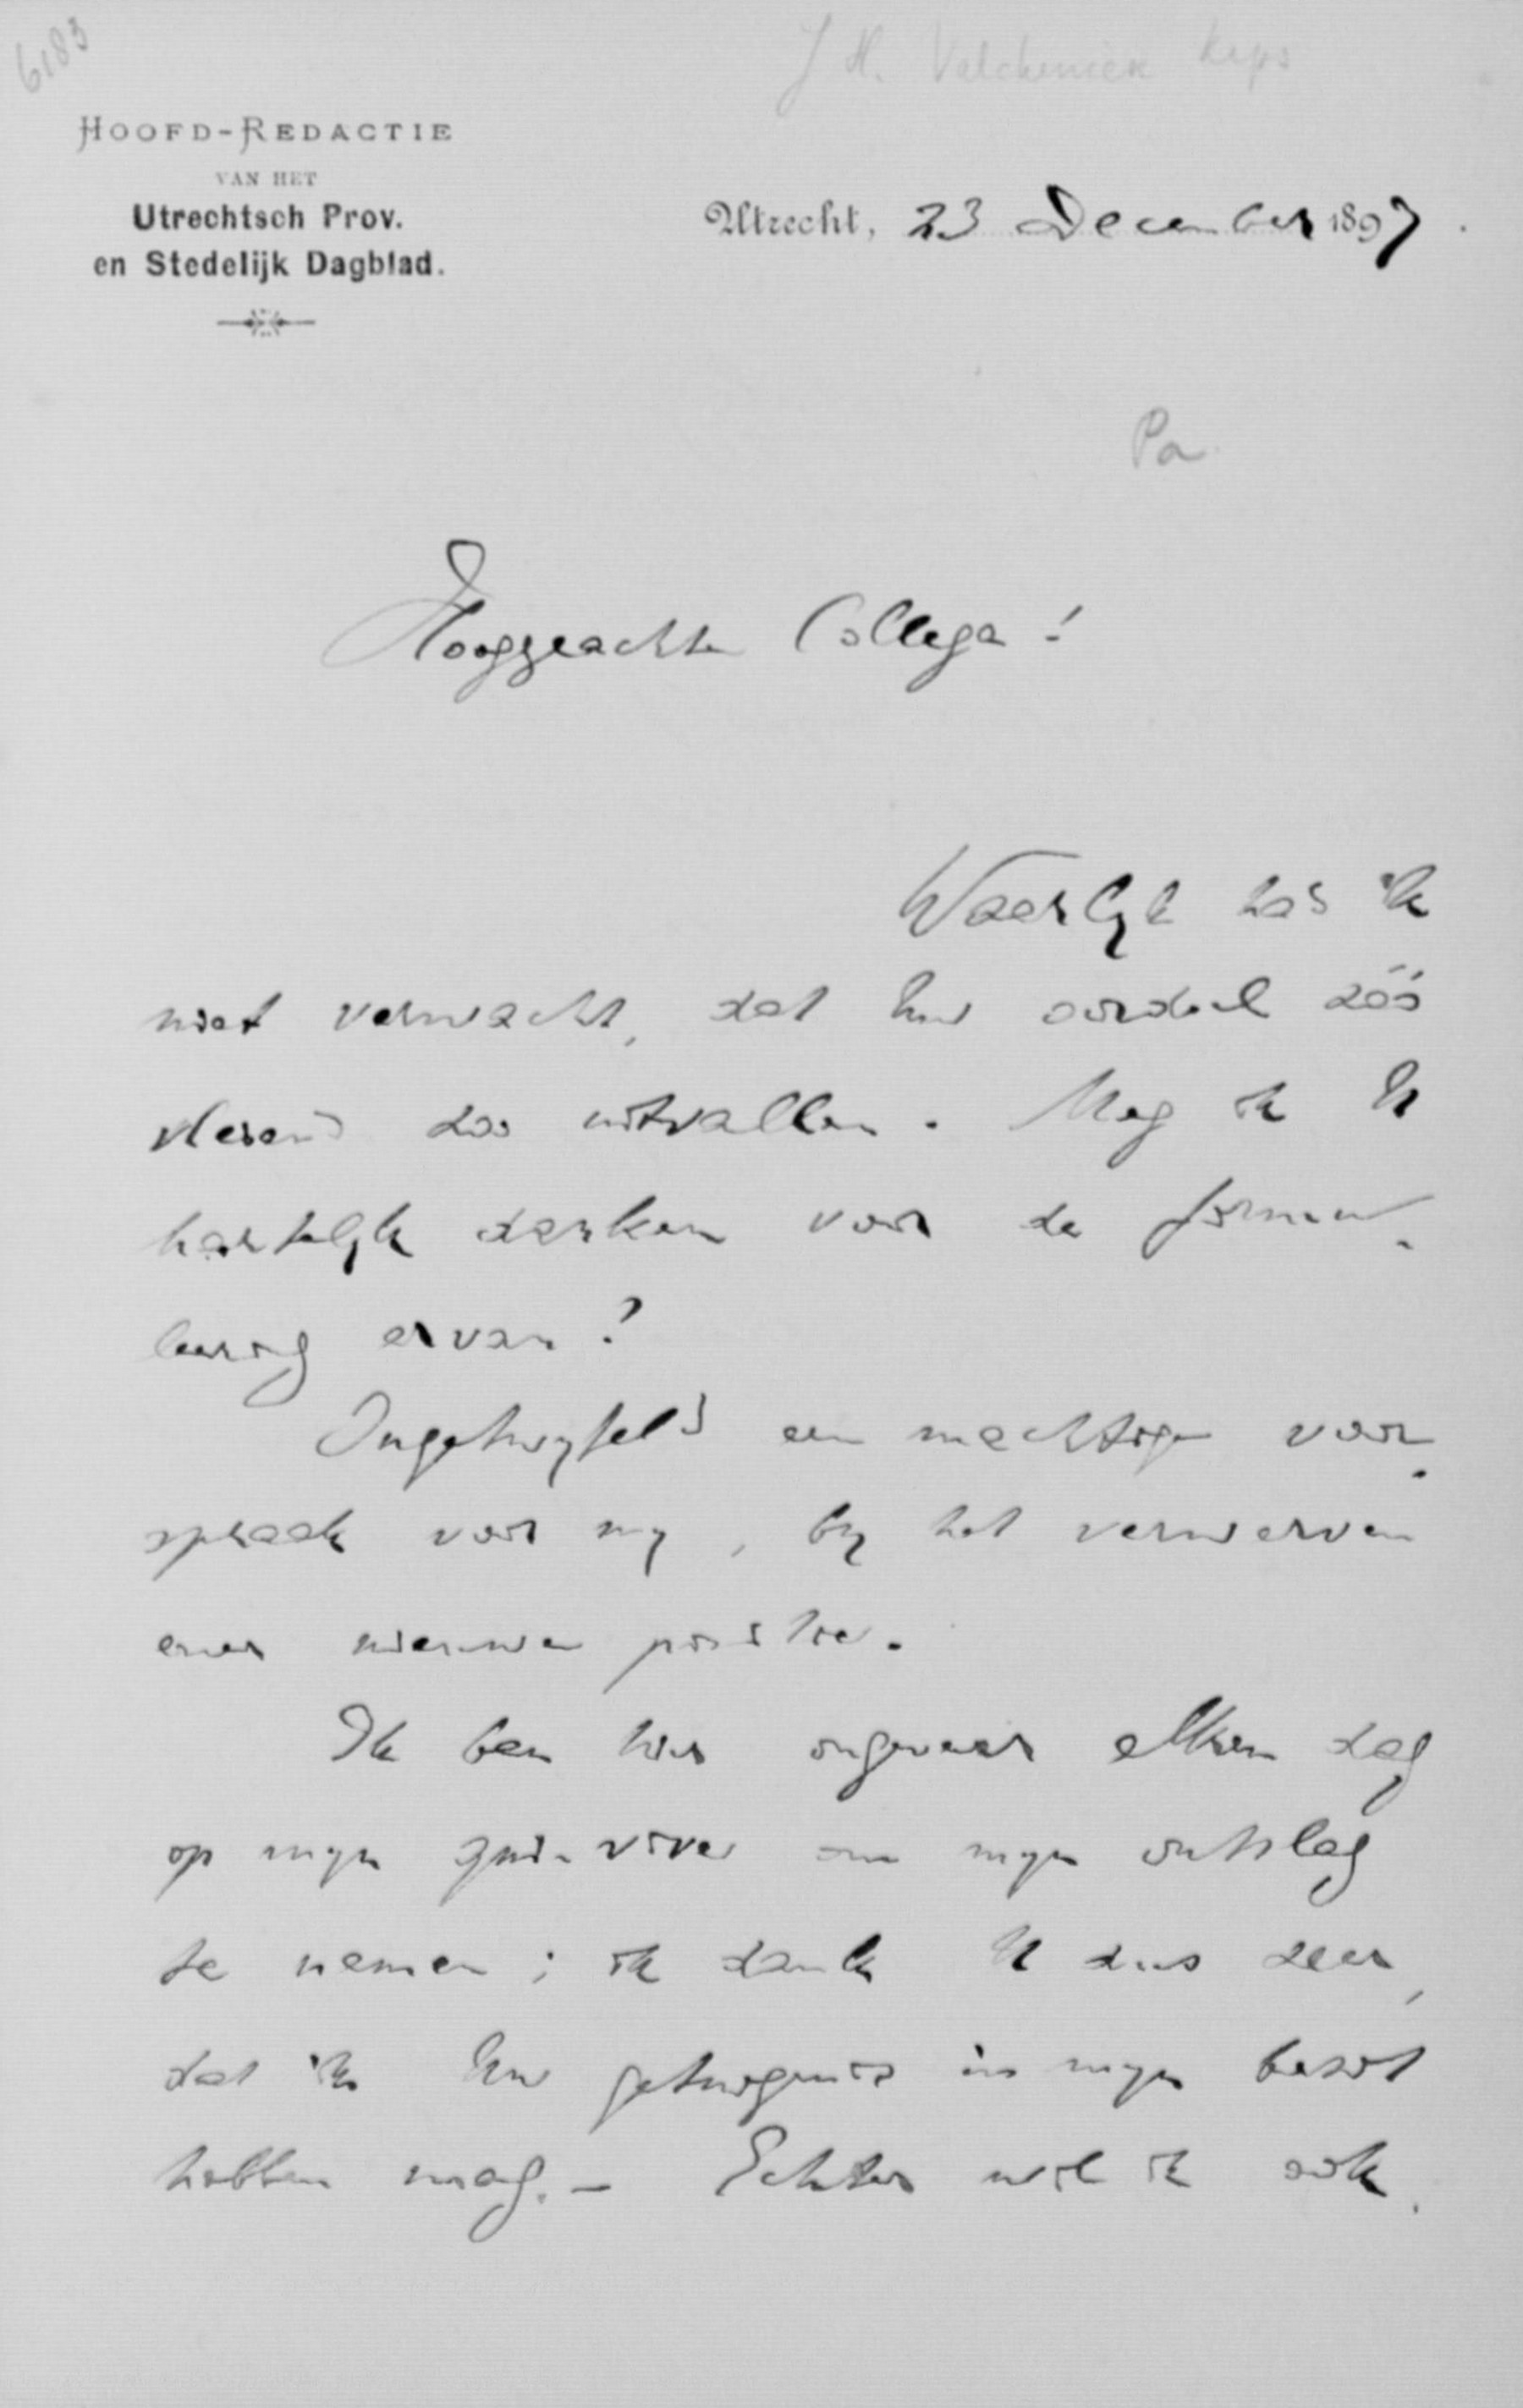 6183
J H. Valckenier Kips
HOOFD-REDACTIE
VAN HET
Utrechtsch Prov.
en Stedelijk Dagblad.
Utrecht, 23 December 1897.
Pa
Hooggeachte Collega!
Waarlijk had ik
niet verwacht, dat Uw oordeel zóó
vleiend zou uitvallen. Mag ik U
hartelijk danken voor de formu-
leering ervan?
Ongetwijfeld een machtige voor-
spraak voor mij, bij het verwerven
eener nieuwe positie.
Ik ben hier ongeveer elken dag
op mijn qui-vive om mijn ontslag
te nemen; ik dank U dus zeer,
dat ik Uw getuigenis in mijn bezit
hebben mag. - Echter wil ik ook,